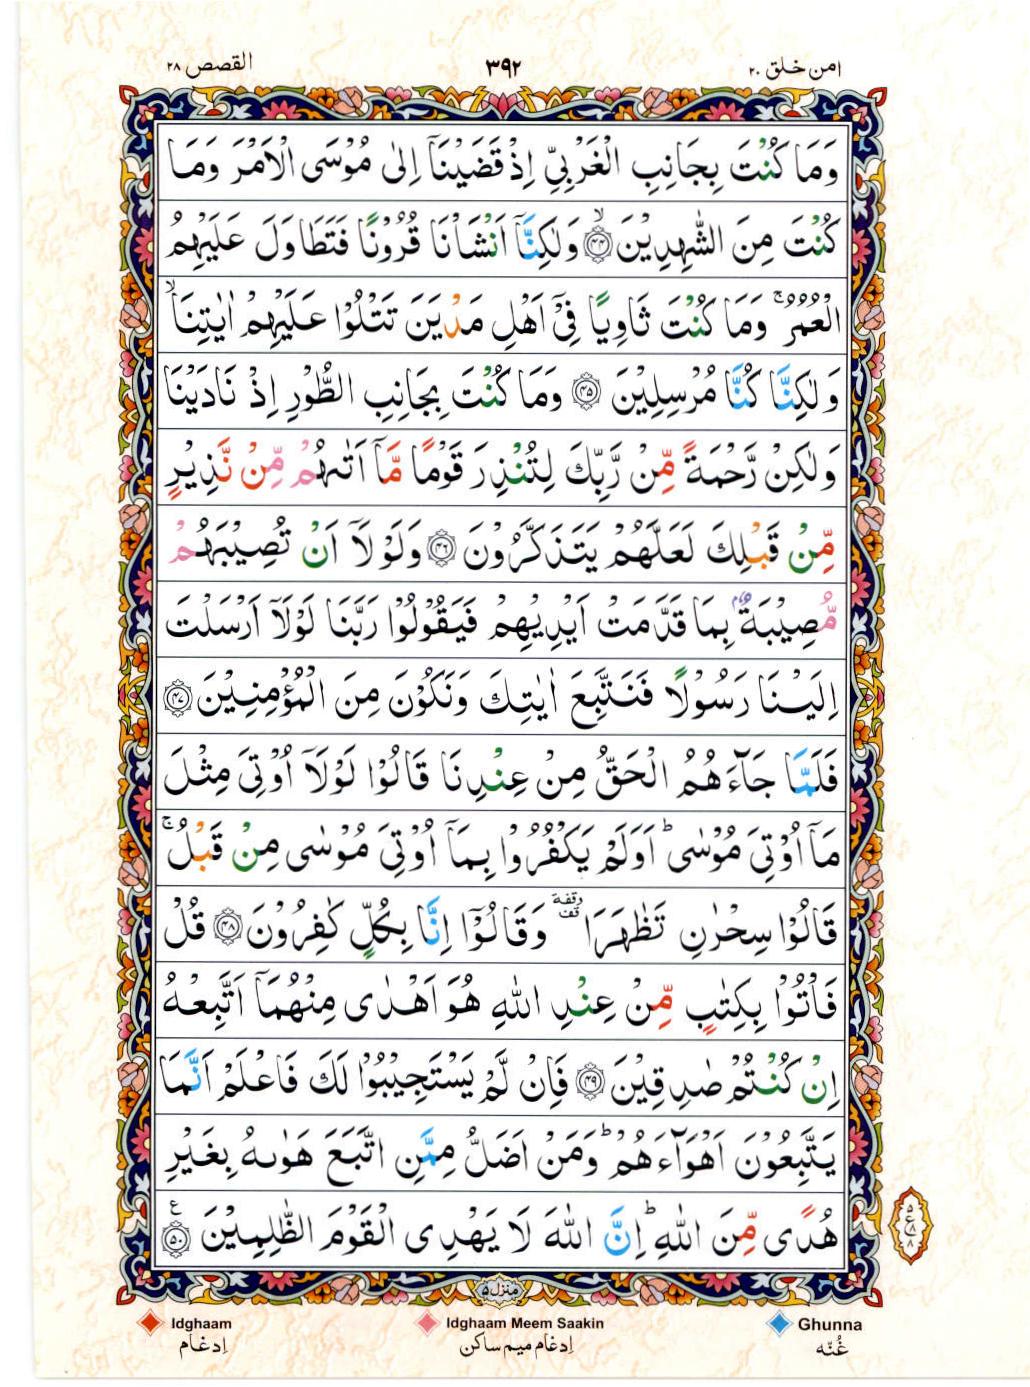 القصص ٢٨
٣٩٢
امن خلق ٢٠
وَمَا كُنْتَ بِجَانِبِ الْغَرْبِيِّ اِذْ قَضَيْنَاۤ اِلٰى مُوْسَى الْاَمْرَ وَمَا
كُنْتَ مِنَ الشّٰهِدِيْنَ ۙ‏﴿۴۴﴾ وَلٰكِنَّاۤ اَنْشَاْنَا قُرُوْنًا فَتَطَاوَلَ عَلَيْهِمُ
الْعُمُرُ ۚ وَمَا كُنْتَ ثَاوِيًا فِىْۤ اَهْلِ مَدْيَنَ تَتْلُوْا عَلَيْهِمْ اٰيٰتِنَا ۙ
وَلٰكِنَّا كُنَّا مُرْسِلِيْنَ ﴿۴۵﴾ وَمَا كُنْتَ بِجَانِبِ الطُّوْرِ اِذْ نَادَيْنَا
وَلٰكِنْ رَّحْمَةً مِّنْ رَّبِّكَ لِتُنْذِرَ قَوْمًا مَّاۤ اَتٰٮهُمْ مِّنْ نَّذِيْرٍ
مِّنْ قَبْلِكَ لَعَلَّهُمْ يَتَذَكَّرُوْنَ ﴿۴۶﴾ وَلَوْلَاۤ اَنْ تُصِيْبَهُمْ
مُّصِيْبَةٌۢ بِمَا قَدَّمَتْ اَيْدِيْهِمْ فَيَقُوْلُوْا رَبَّنَا لَوْلَاۤ اَرْسَلْتَ
اِلَيْنَا رَسُوْلًا فَنَتَّبِعَ اٰيٰتِكَ وَنَكُوْنَ مِنَ الْمُؤْمِنِيْنَ ﴿۴۷﴾
فَلَمَّا جَآءَهُمُ الْحَقُّ مِنْ عِنْدِنَا قَالُوْا لَوْلَاۤ اُوْتِىَ مِثْلَ
مَاۤ اُوْتِىَ مُوْسٰى ؕ اَوَلَمْ يَكْفُرُوْا بِمَاۤ اُوْتِىَ مُوْسٰى مِنْ قَبْلُ ۚ
قَالُوْا سِحْرٰنِ تَظٰهَرَا ۟ وقفة قف وَقَالُوْۤا اِنَّا بِكُلٍّ كٰفِرُوْنَ ﴿۴۸﴾ قُلْ
فَاْتُوْا بِكِتٰبٍ مِّنْ عِنْدِ اللّٰهِ هُوَ اَهْدٰى مِنْهُمَاۤ اَتَّبِعْهُ
اِنْ كُنْتُمْ صٰدِقِيْنَ ﴿۴۹﴾ فَاِنْ لَّمْ يَسْتَجِيْبُوْا لَكَ فَاعْلَمْ اَنَّمَا
يَتَّبِعُوْنَ اَهْوَآءَهُمْ ؕ وَمَنْ اَضَلُّ مِمَّنِ اتَّبَعَ هَوٰٮهُ بِغَيْرِ
هُدًى مِّنَ اللّٰهِ ؕ اِنَّ اللّٰهَ لَا يَهْدِى الْقَوْمَ الظّٰلِمِيْنَ ﴿۵۰﴾ ع
۵
ع ۸
۸
منزل ۵
Idghaam
Idghaam Meem Saakin
Ghunna
اِدغام
اِدغام ميم ساكن
غُنّه